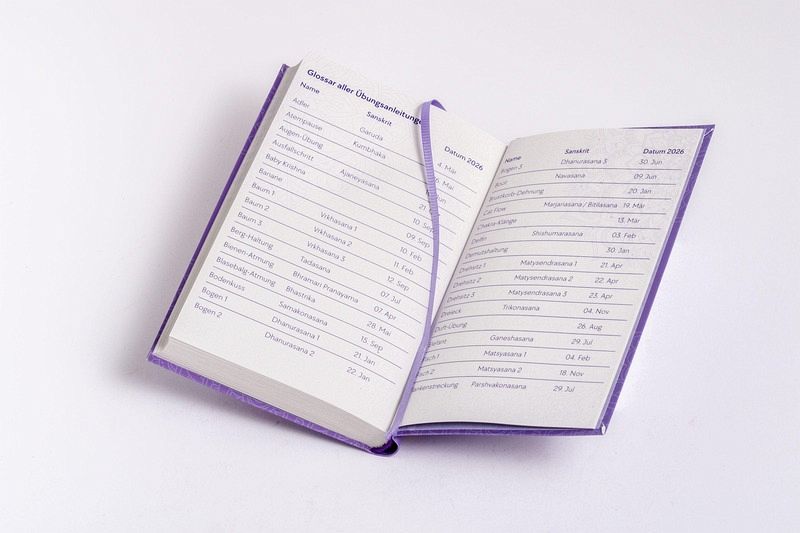 Glossar aller Übungsanleitunge
Name Sanskrit Datum 2026
Adler Garuda 4. Mär
Atempause Kumbhaka 6. Mai
Augen-Übung Jun
Ausfallschritt Ajaneyasana 21.
Baby Krishna 10. Sep
Banane 09. Sep
Baum 1 Vrkhasana 1 10. Feb
Baum 2 Vrkhasana 2 11. Feb
Baum 3 Vrkhasana 3 12. Sep
Berg-Haltung Tadasana 07. Jul
Bienen-Atmung Bhramari Pranayama 07. Apr
Blasebalg-Atmung Bhastrika 28. Mai
Bodenkuss Samakonasana 15. Sep
Bogen 1 Dhanurasana 1 21. Jan
Bogen 2 Dhanurasana 2 22. Jan
Name Sanskrit Datum 2026
Bogen 3 Dhanurasana 3 30. Jun
Boot Navasana 09. Jun
Brustkorb-Dehnung 20. Jan
Cat Flow Marjariasana / Bitilasana 19. Mär
Chakra-Klänge 13. Mär
Delfin Shishumarasana 03. Feb
Demutshaltung 30. Jan
Drehsitz 1 Matysendrasana 1 21. Apr
Drehsitz 2 Matysendrasana 2 22. Apr
Drehsitz 3 Matysendrasana 3 23. Apr
Dreieck Trikonasana 04. Nov
Duft-Übung 26. Aug
efant Ganeshasana 29. Jul
sch 1 Matsyasana 1 04. Feb
sch 2 Matsyasana 2 18. Nov
ankenstreckung Parshvakonasana 29. Jul